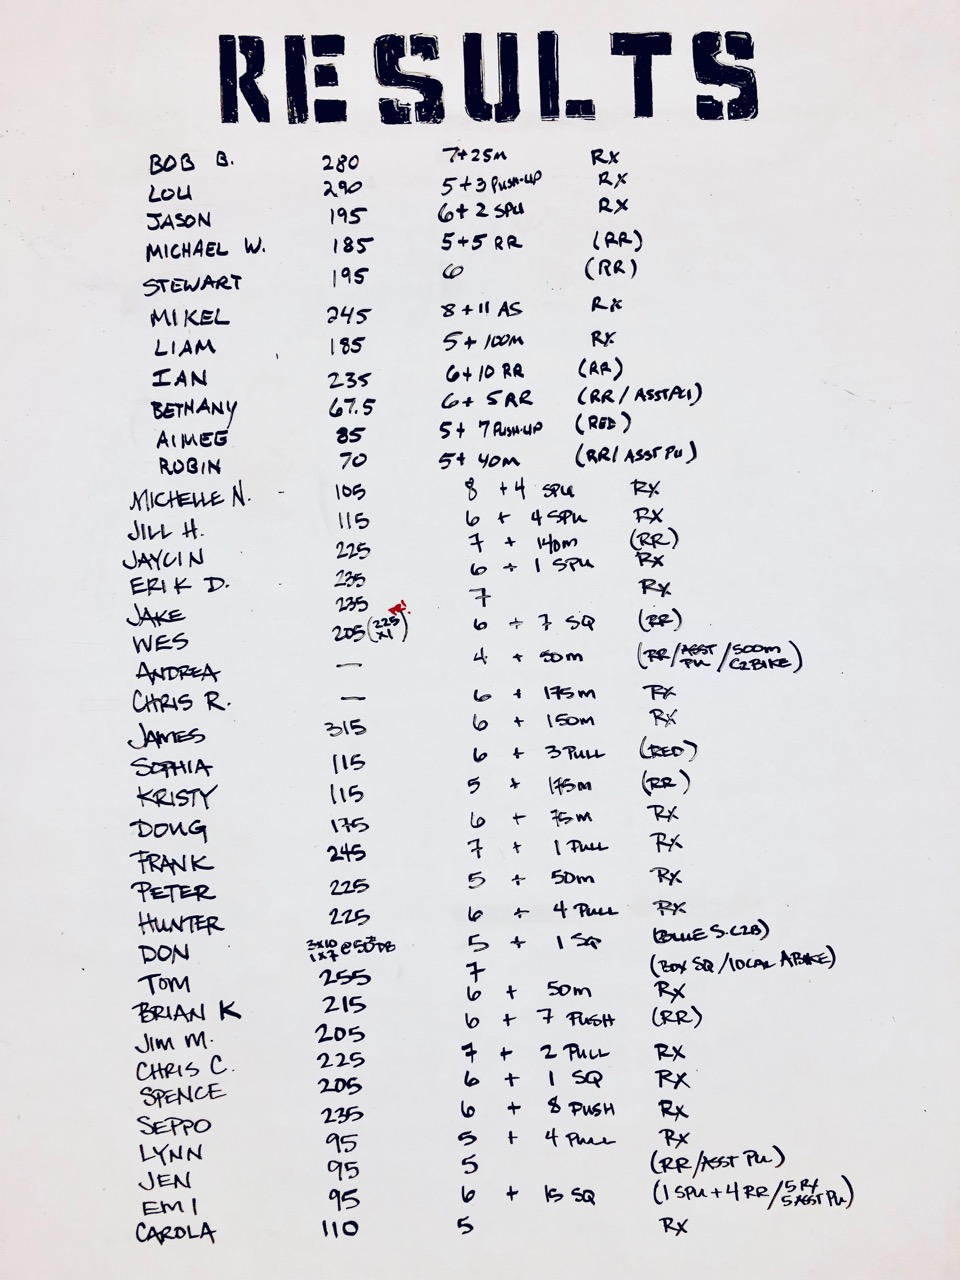 RESULTS
BOB B. 280 7+25m RX
LOU 290 5+3 PUSH-UP RX
JASON 195 6+2 SPU RX
MICHAEL W. 185 5+5 RR (RR)
STEWART 195 6 (RR)
MIKEL 245 8+11 AS RX
LIAM 185 5+100m RX
IAN 235 6+10 RR (RR)
BETHANY 67.5 6+5 RR (RR/ASST PU)
AIMEE 85 5+7 PUSH-UP (RED)
ROBIN 70 5+40m (RR/ASST PU)
MICHELLE N. - 105 8 +4 SPU RX
JILL H. 115 6 + 4 SPU RX
JAYCIN 225 7 + 140m (RR)
ERIK D. 235 6 + 1 SPU RX
JAKE 235 7 RX
WES 205 (225 x1) PR! 6 + 7 SQ (RR)
ANDREA — 4 + 50m (RR/ASST PU/500m C2BIKE)
CHRIS R. — 6 + 175m RX
JAMES 315 6 + 150m RX
SOPHIA 115 6 + 3 PULL (RED)
KRISTY 115 5 + 175m (RR)
DOUG 175 6 + 75m RX
FRANK 245 7 + 1 PULL RX
PETER 225 5 + 50m RX
HUNTER 225 6 + 4 PULL RX
DON 3x10 1x7 @ 50# DB 5 + 1 SQ (BLUE S.C2B)
TOM 255 7 (BOX SQ/10CAL ABIKE)
BRIAN K 215 6 + 50m RX
JIM M. 205 6 + 7 PUSH (RR)
CHRIS C. 225 7 + 2 PULL RX
SPENCE 205 6 + 1 SQ RX
SEPPO 235 6 + 8 PUSH RX
LYNN 95 5 + 4 PULL RX
JEN 95 5 (RR/ASST PU)
EMI 95 6 + 15 SQ (1 SPU+4 RR/5 RX 5 ASST PU)
CAROLA 110 5 RX